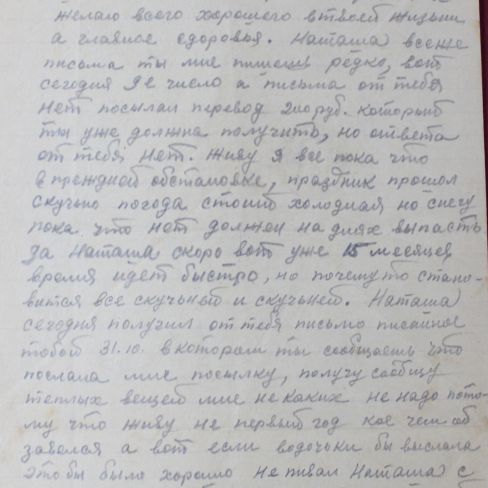 желаю всего хорошего в твоей жизни
а главное здоровья. Наташа все же
письма ты мне пишешь редко, вот
сегодня 9е число а письма от тебя
нет посылал перевод 200 руб. который
ты уже должна получить, но ответа
от тебя нет. живу я все пока что
в преждней обстановке, праздник прошол
скучно погода стоит холодная но снегу
пока что нет должен на днях выпасть
да Наташа скоро вот уже 15 месяцев
время идет быстро, но почему то стано-
вится все скучьней и скучьней. Наташа
сегодня получил от тебя письмо писаное
тобой 31.10. в котором ты сообщаешь что
послала мне посылку, получу сообщу
теплых вещей мне не каких не надо пото-
му что живу не первый год кое чем об
завелся а вот если водочьки бы выслала
это бы было хорошо не пивал Наташа с